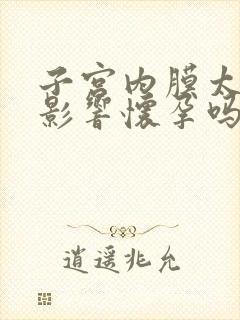 子宫内膜太
影響懷孕吗
逍遥兆允